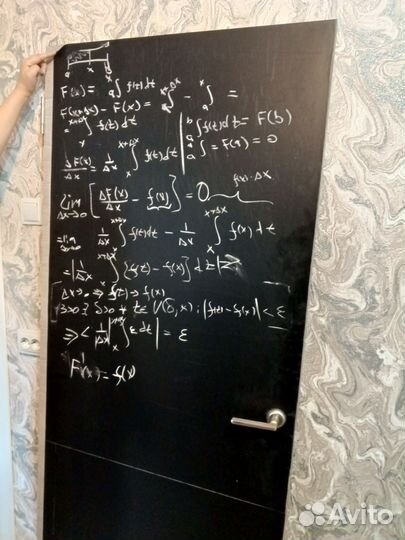 a x b
F(x) = ∫ₐˣ f(t) dt
F(x+Δx) - F(x) = ∫ₐˣ⁺ᐞˣ - ∫ₐˣ =
= ∫ₓˣ⁺ᐞˣ f(t) dt
∫ₐᵇ f(t) dt = F(b)
∫ₐᵃ = F(a) = 0
ΔF(x)/Δx = 1/Δx ∫ₓˣ⁺ᐞˣ f(t) dt
lim Δx→0 [ΔF(x)/Δx - f(x)] = 0
f(x)·Δx
= lim Δx→0 1/Δx ∫ₓˣ⁺ᐞˣ f(t) dt - 1/Δx ∫ₓˣ⁺ᐞˣ f(x) dt
= |1/Δx ∫ₓˣ⁺ᐞˣ {f(t) - f(x)} dt|
Δx→0 ⇒ f(t) → f(x)
t ∈ U(δ, x): |f(t) - f(x)| < ε
⇒ < 1/|Δx| |∫ₓˣ⁺ᐞˣ ε dt| = ε
F'(x) = f(x)
Avito